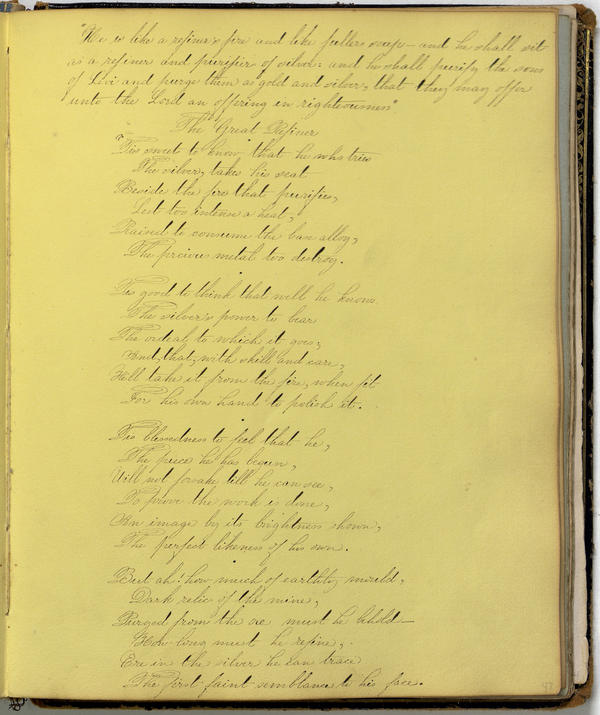 "He is like a refiner's fire and like fullers soap - and he shall sit
as a refiner and purifier of silver: and he shall purify the sons
of Levi and purge them as gold and silver, that they may offer
unto the Lord an offering in righteousness"
The Great Refiner
'Tis sweet to know that he who tries
The silver, takes his seat
Beside the fire that purifies,
Lest too intense a heat,
Raised to consume the base alloy,
The precious metal too destroy.
Tis good to think that well he knows
The silver's power to bear
The ordeal to which it goes;
And that, with skill and care,
He'll take it from the fire, when fit
For his own hand to polish it.
Tis blessedness to feel that he,
The piece he has begun,
Will not forsake till he can see,
To prove the work is done,
An image by its brightness shown,
The perfect likeness of his own.
But ah! how much of earthly mould,
Dark relic of the mine,
Purged from the ore must he behold —
How long must he refine,
Ere in the silver he can trace
The first faint semblance to his face.